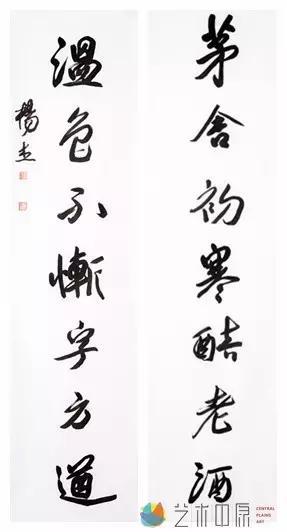 茅舍初寒酷老酒
溫色不慚字方遒
楊杰
艺术中原
CENTRAL
PLAINS
ART